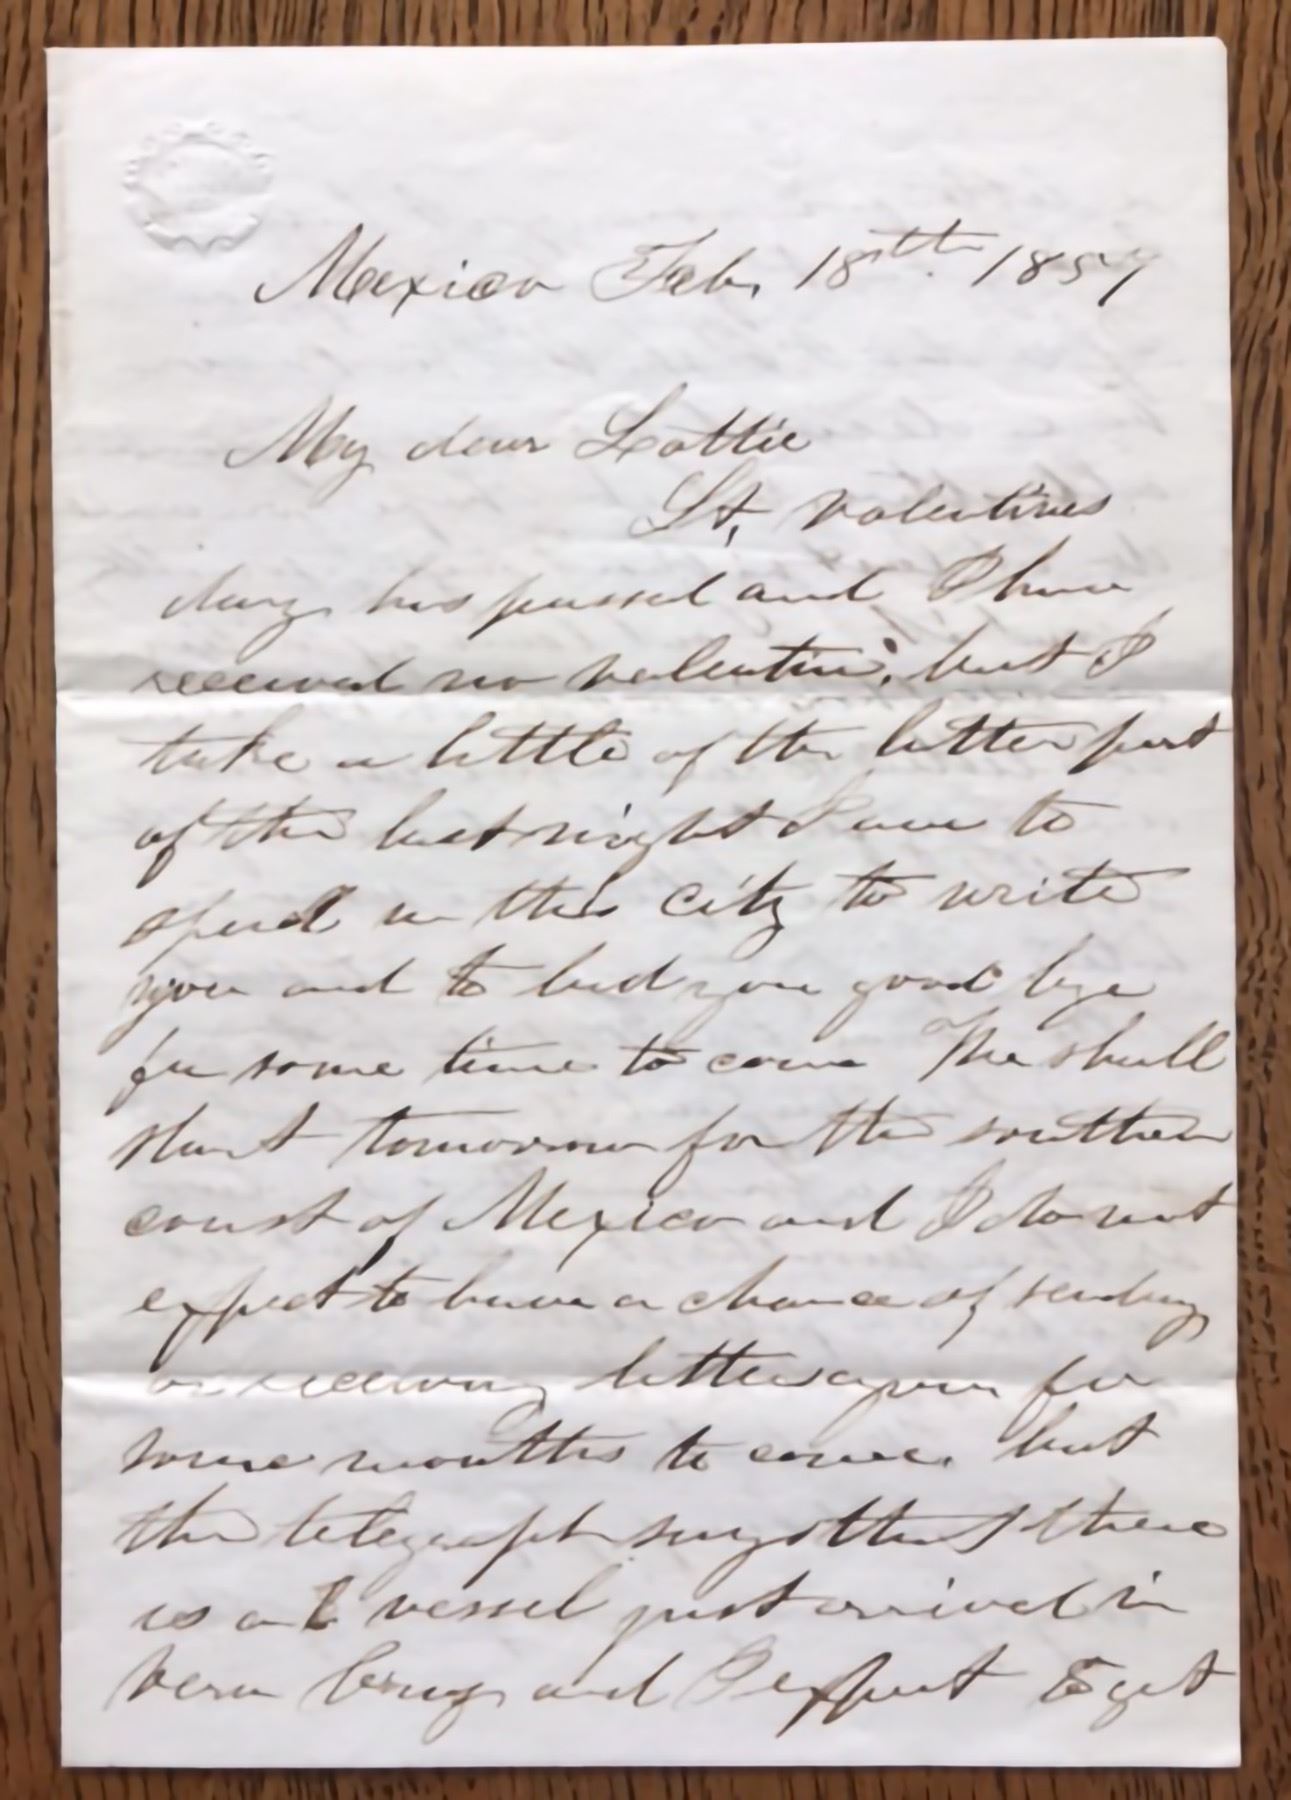 Mexico Feb. 18th. 1857
My dear Lottie
St. Valentines
day has passed and I have
received no valentine, but I
take a little of the latter part
of the last night I am to
spend in this city to write
you and to bid you good bye
for some time to come We shall
start tomorrow for the southern
coast of Mexico and I do not
expect to have a chance of sending
or receiving letters again for
some months to come. but
the telegraph says that there
is a vessel just arrived in
Vera Cruz and I expect to get